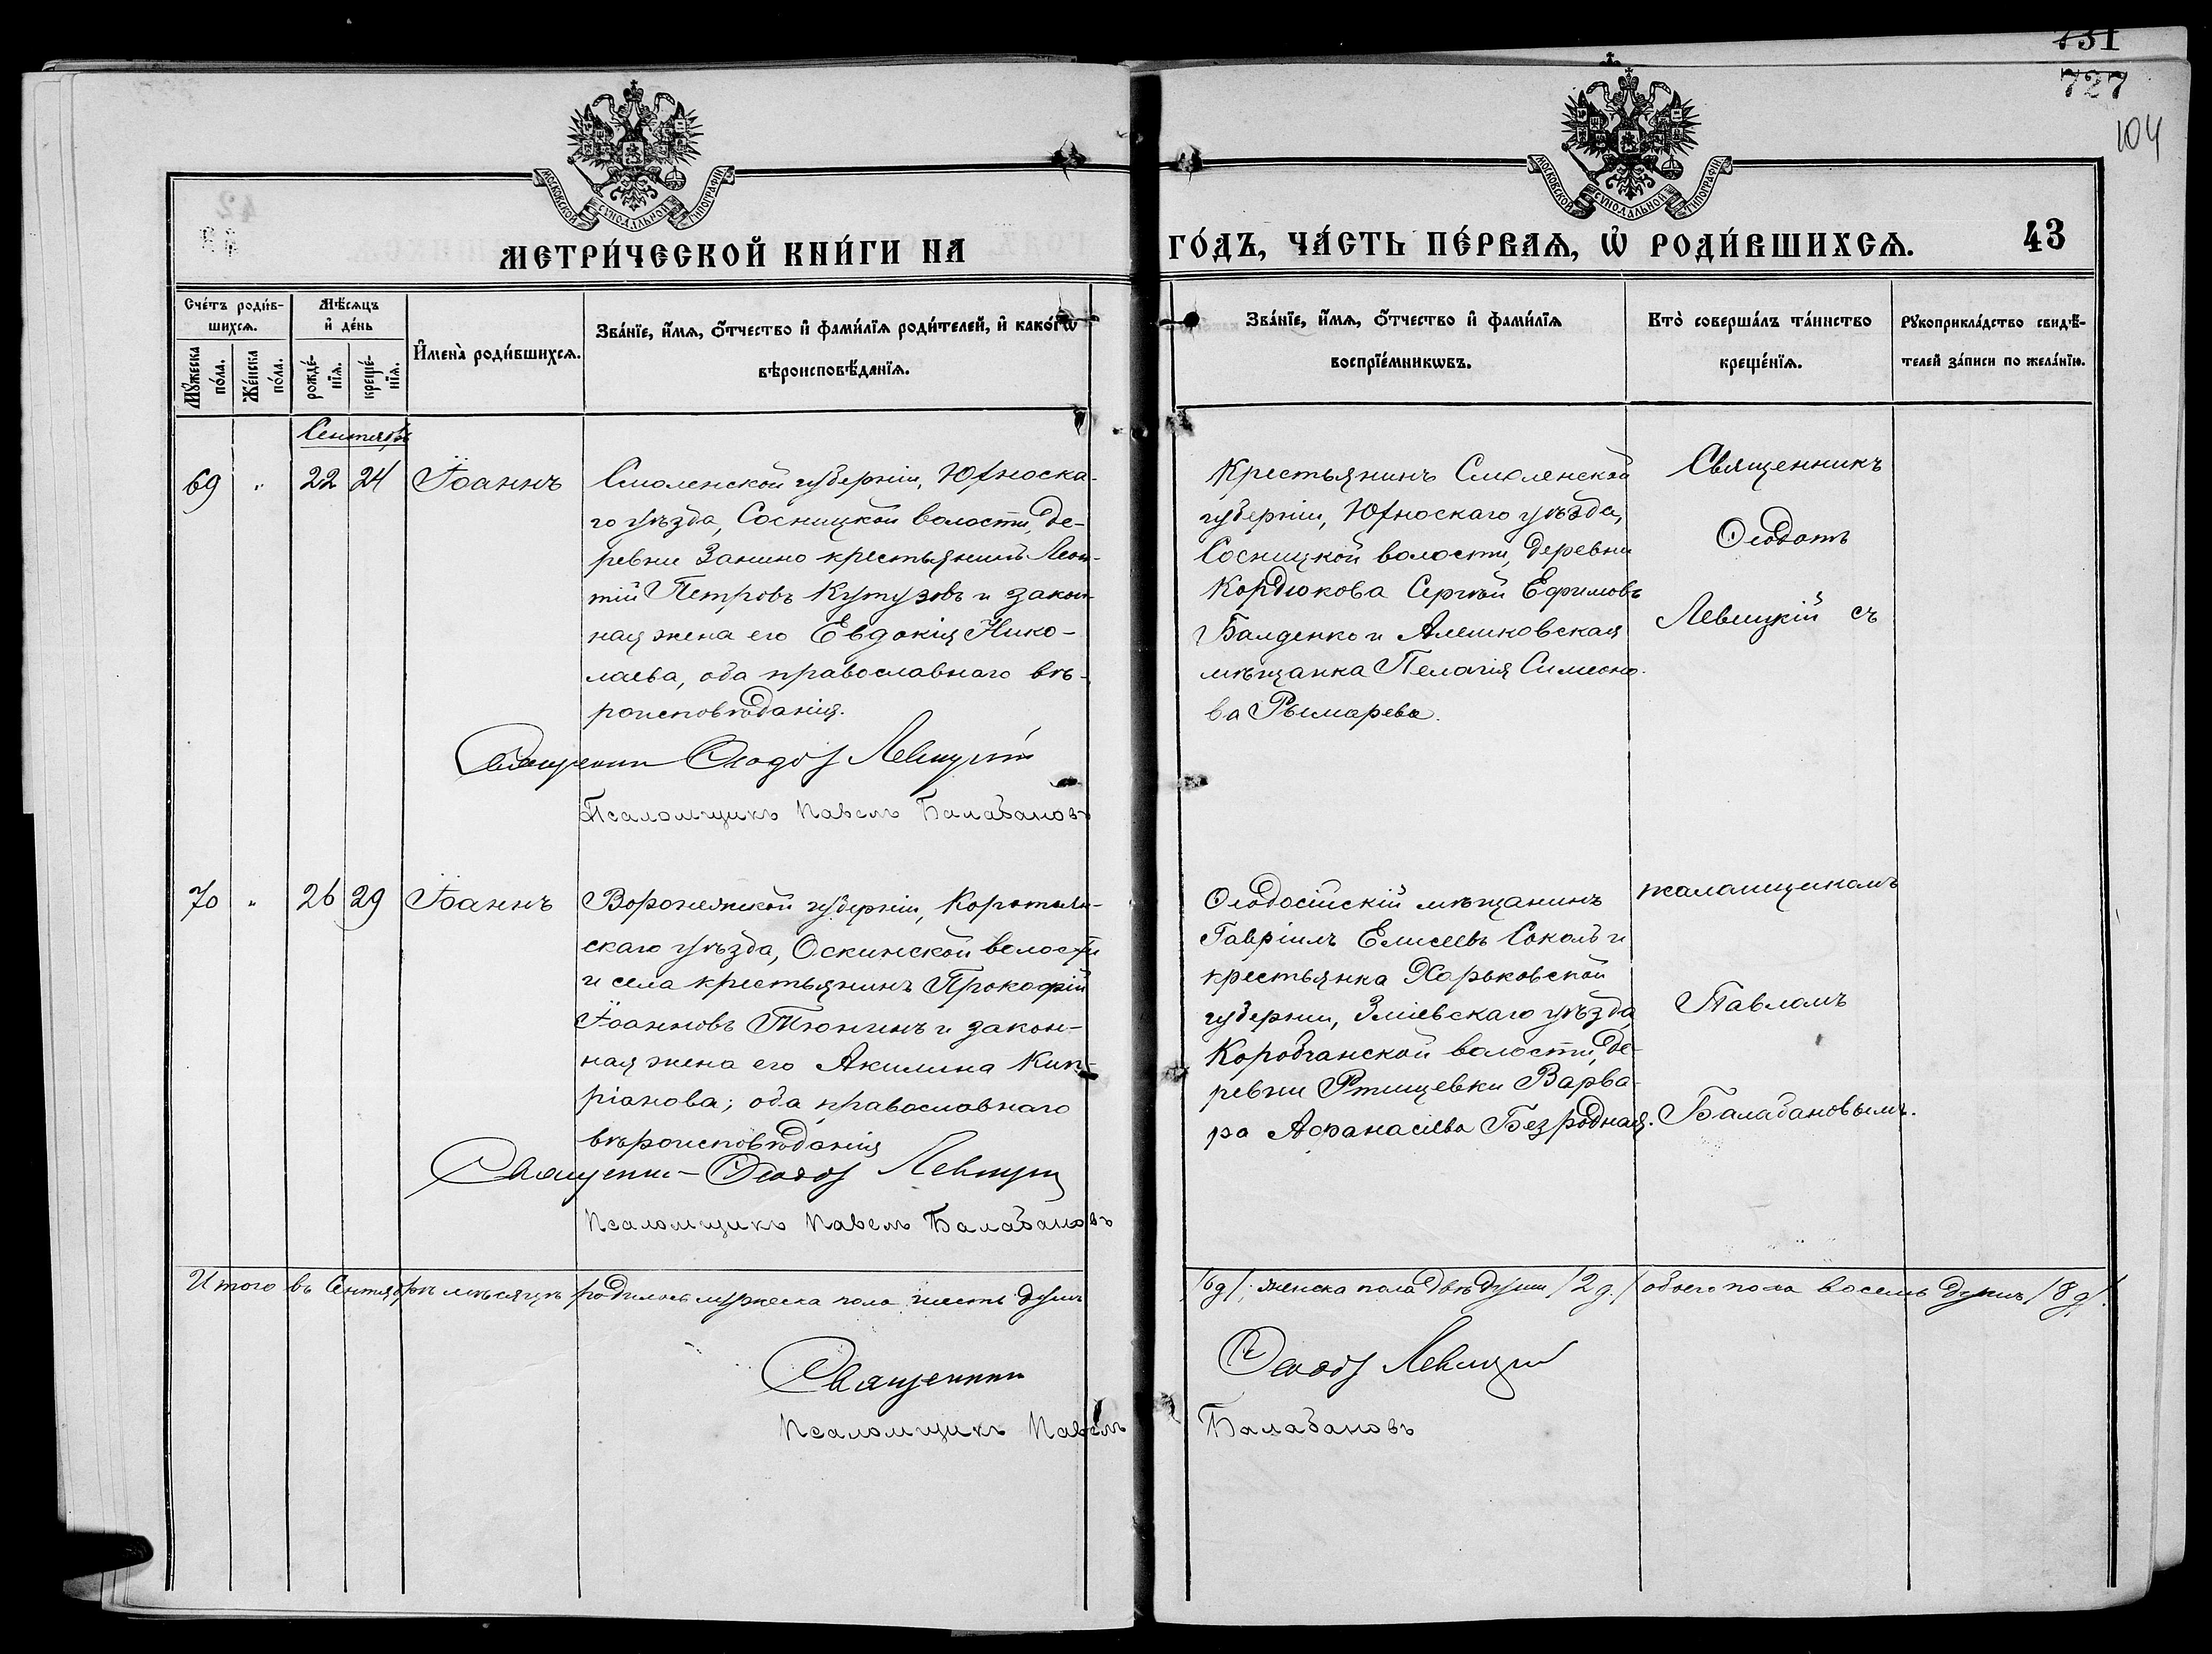 731
727
104
МОСКОВСКОЙ СѴНОДАЛЬНОЙ ТИПОГРАФІИ
МОСКОВСКОЙ СѴНОДАЛЬНОЙ ТИПОГРАФІИ
МЕТРИ́ЧЕСКОЙ КНИ́ГИ НА
ГО́ДЪ, ЧА́СТЬ ПЕ́РВАѦ, Ѡ҆ РОДИ́ВШИХСѦ.
43
Сче́тъ роди́в-
шихсѧ.
Мѣ́сѧцъ
и҆ де́нь
И҆мена̀ роди́вшихсѧ.
Зва́нїе, и҆́мѧ, ѻ҆́тчество и҆ фами́лїѧ роди́телей, и҆ како́гѡ
вѣроисповѣ́данїѧ.
Мꙋ́жеска
по́ла.
Же́нска
по́ла.
рожде́-
нїѧ.
креще́-
нїѧ.
Зва́нїе, и҆́мѧ, ѻ҆́тчество и҆ фами́лїѧ
воспрїе́мникѡвъ.
Кто̀ соверша́лъ та́инство
креще́нїѧ.
Рꙋкоприкла́дство свидѣ́-
телей за́писи по жела́нїю.
Сентябрь
69 " 22 24 Іоаннъ
Смоленской губерніи, Юхноска-
го уѣзда, Сосницкой волости, де-
ревни Занино крестьянинъ Леон-
тій Петровъ Кутузовъ и закон-
ная жена его Евдокія Нико-
лаева, оба православнаго вѣ-
роисповѣданія.
Священник Ѳеодот Левицкій
Псаломщикъ Павелъ Балабановъ
Крестьянинъ Смоленской
губерніи, Юхноскаго уѣзда,
Сосницкой волости, деревни
Кордюкова Сергѣй Ефимовъ
Балденко и Алешковская
мѣщанка Пелагія Симеоно-
ва Рымарева.
Священникъ
Ѳеодотъ
Левицкій съ
70 " 26 29 Іоаннъ
Воронежской губерніи, Коротояк-
скаго уѣзда, Оскинской волости
и села крестьянинъ Прокофій
Іоанновъ Тюнинъ и закон-
ная жена его Акилина Кип-
ріанова; оба православнаго
вѣроисповѣданія
Священник Ѳеодот Левицкій
Псаломщикъ Павелъ Балабановъ
Ѳеодосійскій мѣщанинъ
Гавріилъ Елисеевъ Соколъ и
крестьянка Харьковской
губерніи, Зміевскаго уѣзда
Коробчанской волости, де-
ревни Ртищевки Варва-
ра Аѳанасіева Безродная.
псаломщикомъ
Павломъ
Балабановымъ.
Итого въ Сентябрѣ мѣсяцѣ родилось мужеска пола шесть душъ /6 д/; женска пола двѣ души /2 д./ обоего пола восемь душъ /8 д/.
Священник Ѳеодот Левицкій
Псаломщикъ Павелъ Балабановъ